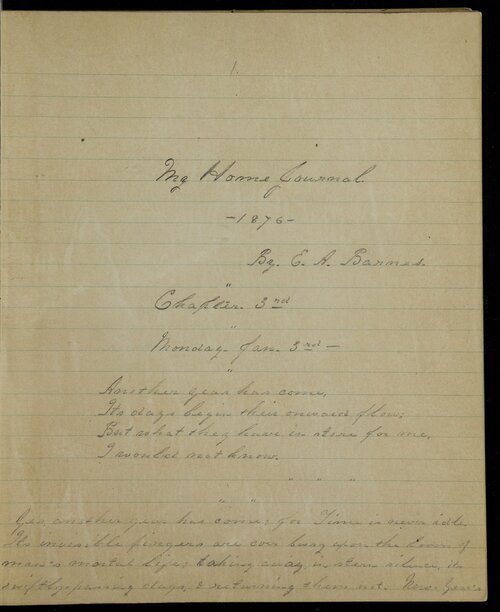 1.
My Home Journal.
-1876-
By. E. A. Barnes.
"
Chapter. 3rd
"
Monday. Jan. 3rd —
"
Another year has come,
Its days begin their onward flow;
But what they have in store for me,
I would not know.
" " " "
" "
Yes, another year has come; for Time is never idle.
Its invisible fingers are ever busy upon the of
man's mortal life; taking away, in stern silence, its
swift-passing days, & returning them not. New Year's